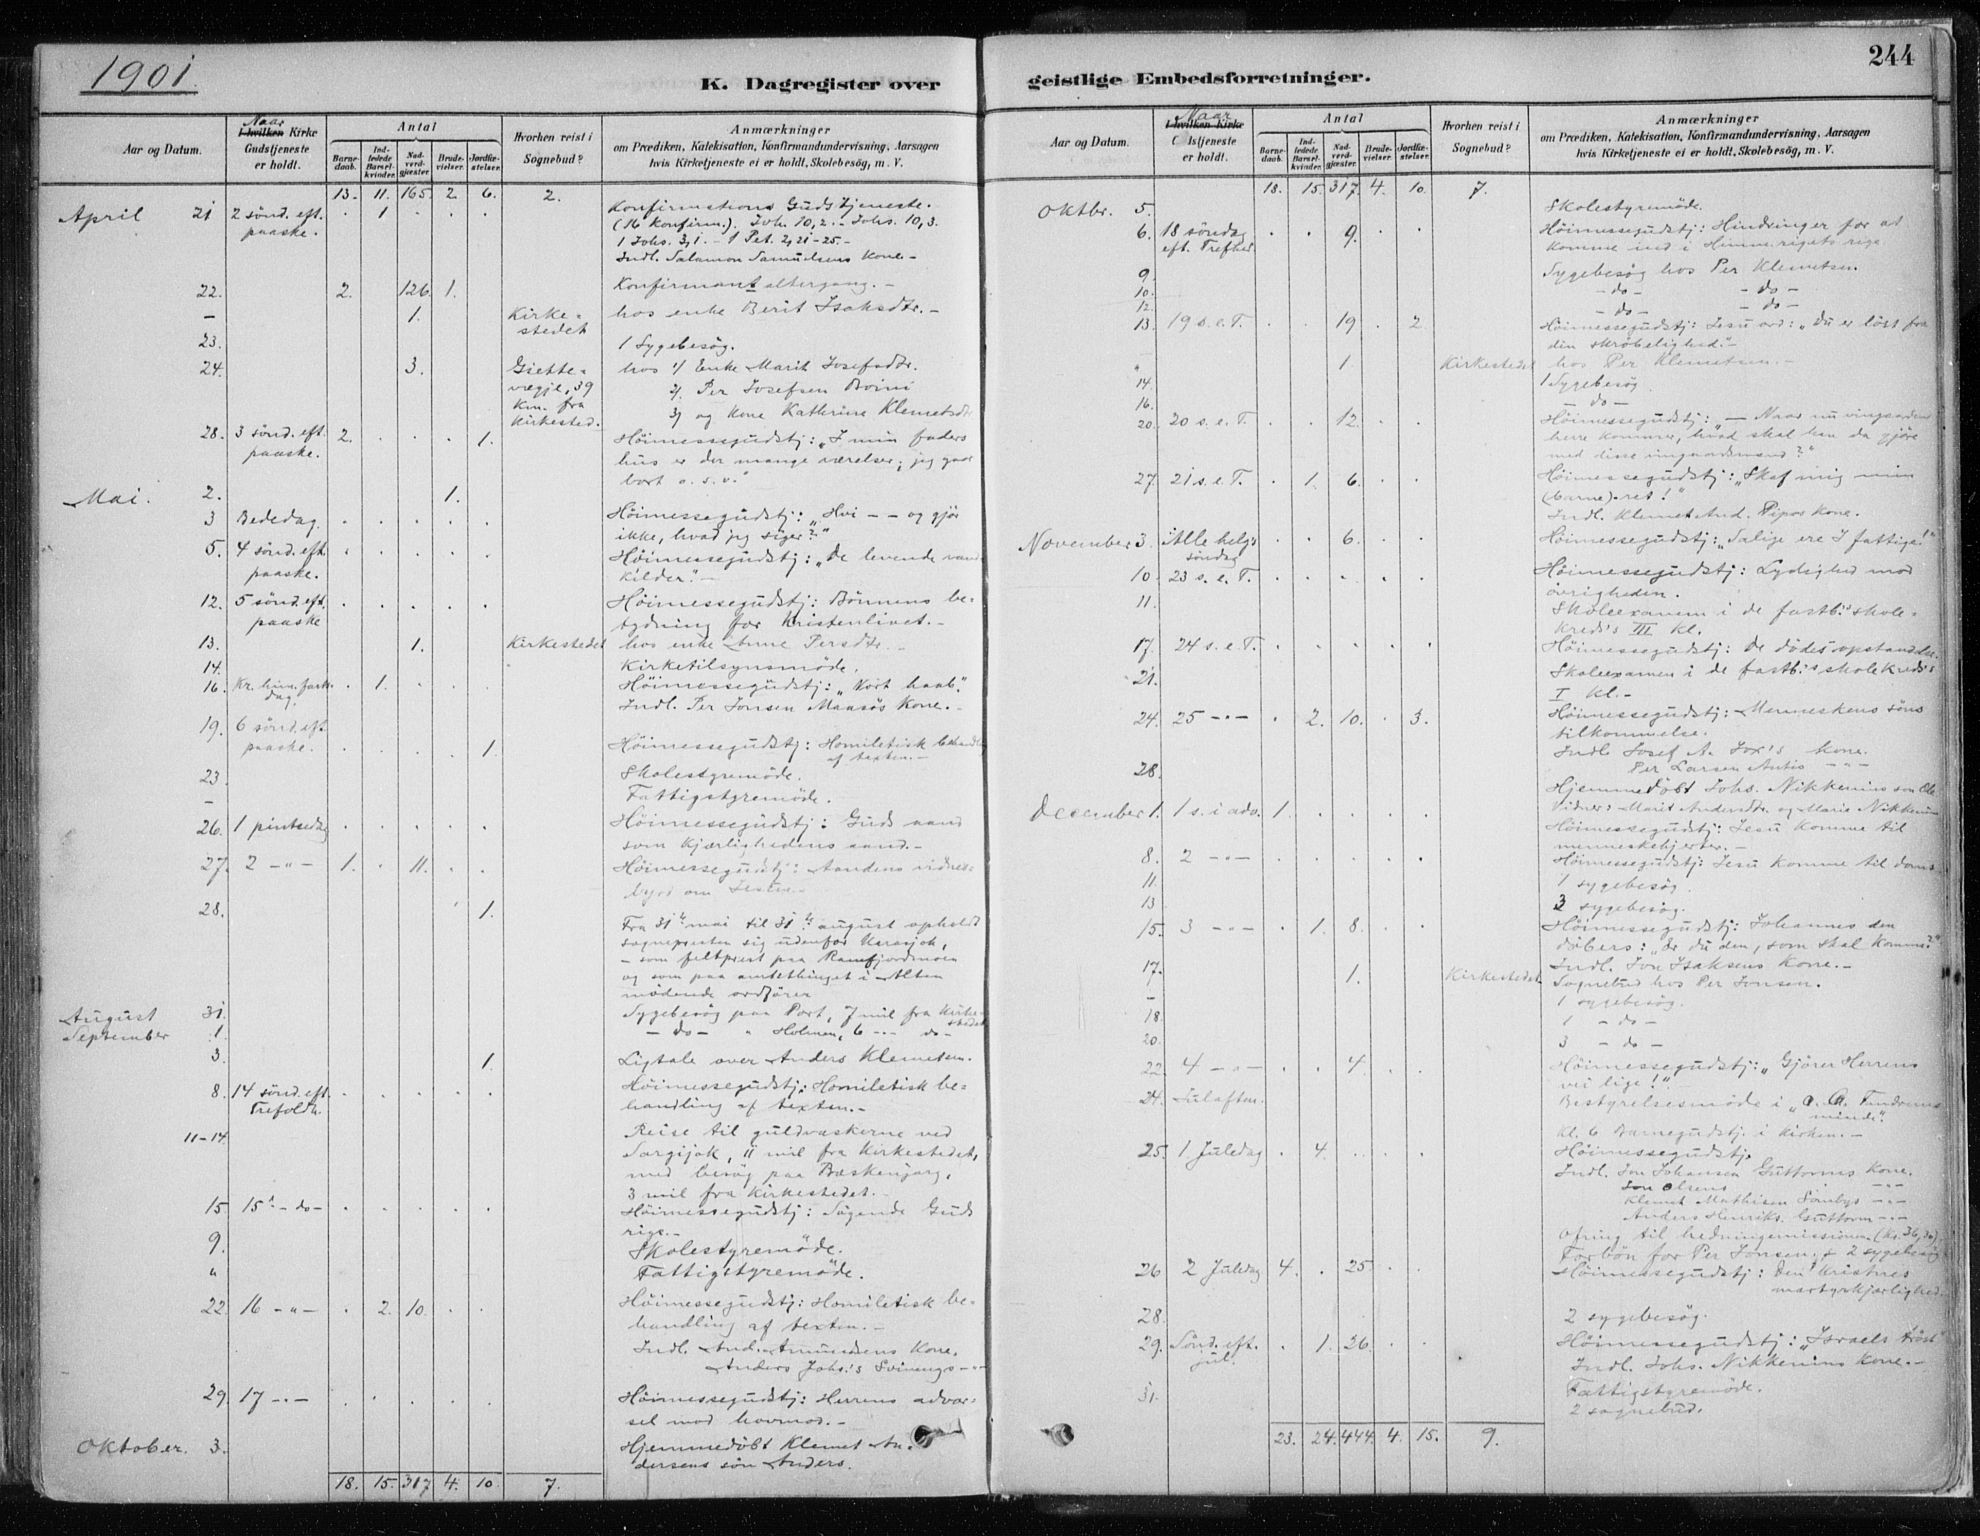 1901
K. Dagregister over
Aar og Datum.
Naar
I hvilken Kirke
Gudstjeneste
er holdt.
Antal
Barne-
daab.
Ind-
ledede
Barsel-
kvinder.
Nad-
verd-
gjæster.
Brude-
vielser.
Jordfæ-
stelser.
Hvorhen reist i
Sognebud?
Anmærkninger
om Prædiken, Katekisation, Konfirmandundervisning, Aarsagen
hvis Kirketjeneste ei er holdt, Skolebesög, m. V.
13. 11. 165. 2. 6. 2.
April 21 2 sönd. eft. . 1 . . . Konfirmations Gudstjeneste.
paaske. (16 Konfirm.). Joh. 10,2. - Johs. 10,3.
1 Johs. 3,1. - 1 Pet. 2,21-25. -
Indl. Salamon Samuelsens Kone. -
22. 2. 126. 1. Konfirmantaltergang. -
- 1. Kirke- hos enke Berit Isaksdtr. -
stedet
23. 1 Sygebesög.
24. 3. Giette- hos 1/ Enke Marit Josefsdtr.
vegje, 39 2/ Per Josefsen Boini
km. fra 3/ og Kone Kathrine Klemetsdtr
Kirkested.
28. 3 sönd. eft. 2. . . . 1. Höimessegudstj: "I min faders
paaske. hus er der mange værelser; jeg gaar
bort o. s. v."
Mai. 2. 1.
3 Bededag. . . . . . Höimessegudstj: "Hvi - - og gjör
ikke, hvad jeg siger?"
5. 4 sönd. eft. . . . . . Höimessegudstj: "De levende vand
paaske. kilder". -
12. 5 sönd. eft. . . . . . Höimessegudstj: Bönnens be-
paaske tydning for Kristenlivet. -
13. 1. Kirkestedet hos enke Anne Persdtr. -
14. Kirketilsynsmöde.
16. Kr. him. farts . 1. Höimessegudstj: "Vort haab".
dag. Indl. Per Jonsen Maasös Kone. -
19. 6 sönd. eft.
paaske. . . . . 1. Höimessegudstj: Homiletisk behandling
af texten. -
23 Skolestyremöde.
- Fattigstyremöde.
26. 1 pintsedag . . . . . Höimessegudstj: Guds aand
som kjærlighedens aand. -
27. 2 -"- 1. . 11. . . Höimessegudstj: Aandens vidnes-
byrd om Jesus. -
28. 1.
Fra 31te mai til 31te august opholdt
sognepresten sig udenfor Karasjok,
- som feltprest paa Ramfjordmoen
og som paa amtsthinget i Alten
mödende ordförer
August 31. Sygebesög paa Port, 7 mil fra Kirke-
stedet
September 1. - do - " Holmen, 6 -"- do -
3. 1. Ligtale over Anders Klemetsen.
8. 14 sönd. eft. . . . . . Höimessegudstj: Homiletisk be-
Trefoldh. handling af texten. -
11-14. Reise til guldvaskerne ved
Sargijok, 11 mil fra Kirkestedet,
med besög paa Bæskenjarg,
3 mil fra Kirkestedet. -
15 15de - do - . . . . . Höimessegudstj: Sögende Guds
rige. -
9. Skolestyremöde.
" Fattigstyremöde.
22. 16 -"- . 2. 10. . . Höimessegudstj: Homiletisk be-
handling af texten. -
Indl. And. Amundsens Kone.
Anders Johs.'s Svinengs -"-
29. 17 -"- . . . . . Höimessegudstj: Herrens advar-
sel mod hovmod. -
Oktober. 3. Hjemmedöbt Klemet An-
dersens sön Anders.
18. 15. 317 4. 10 7.
geistlige Embedsforretninger.
244
Aar og Datum.
Naar
I hvilken Kirke
Gudstjeneste
er holdt.
Antal
Barne-
daab.
Ind-
ledede
Barsel-
kvinder.
Nad-
verd-
gjæster.
Brude-
vielser.
Jordfæ-
stelser.
Hvorhen reist i
Sognebud?
Anmærkninger
om Prædiken, Katekisation, Konfirmandundervisning, Aarsagen
hvis Kirketjeneste ei er holdt, Skolebesög, m. V.
18. 15. 317. 4. 10. 7.
Oktbr. 5. Skolestyremöde.
6. 18 söndag . . 9. . . Höimessegudstj: Hindringer for at
eft. Trefhed komme ind i Himmerigets rige
9. Sygebesög hos Per Klemetsen.
10. - do - - do -
12. - do - - do -
13. 19 s. e. T. . . 19 . 2. Höimessegudstj: Jesu ord: "Du er löst fra
din skröbelighed". -
" 1 Kirkestedet hos Per Klemetsen. -
14. 1 Sygebesög
16. - do -
20. 20 s. e. T. . . 12. . . Höimessegudstj: " - Naar nu vingaardens
herre kommer, hvad skal han da gjöre
med disse vingaardsmænd?"
27. 21 s. e. T. . 1. 6. . . Höimessegudstj: "Skaf mig min
(barne)-ret!"
Indl. Klemet And. Pipos Kone.
November 3. Alle helg's . . 6. . . Höimessegudstj: "Salige ere I fattige!"
söndag
10. 23 s. e. T. . . . . . Höimessegudstj: Lydighed mod
övrigheden.
11. Skoleexamen i de fastb.'s skole-
kreds's III kl.
17. 24 s. e. T. . . . . . Höimessegudstj: De dödes opstandelse.
21. Skoleexamen i de fastb.'s skolekreds's
I kl. -
24. 25 -"- . 2. 10. . 3. Höimessegudstj: Menneskens söns
tilkommelse.
Indl. Josef A. Jox's Kone.
Per Larsen Antis -"-
28. Hjemmedöbt Johs. Nikkenins sön Ole
Vidner: Marit Andersdtr. og Marie Nikkenin
December 1. 1 s. i adv. 1. . . . . Höimessegudstj: Jesu Komme til
menneskehjerter. -
8. 2 -"- . . . . . Höimessegudstj: Jesu Komme til doms
11. 1 sygebesög.
13 3 sygebesög.
15. 3 -"- . 1. 8. . . Höimessegudstj: Johannes den
döbers: "Er du den, som skal komme?"
Indl. Jon Isaksens Kone. -
17. 1. Kirkestedet Sognebud hos Per Jonsen.
- 1 sygebesög.
18. 1 - do -
20. 3 - do -
22. 4 -"- . . 4. . . Höimessegudstj: "Gjörer Herrens
vei lige!".
24. Julaften. Bestyrelsesmöde i "O. A. Tandrems
minde".
Kl. 6 Barnegudstj. i kirken. -
25. 1 Juledag . 4. . . . Höimessegudstj.
Indl. Jon Johansen Guttorms Kone.
Jon Olsens -"-
Klemet Mathisen Sombys -"-
Anders Henriks. Guttorm -"-
Ofring til hedningemissionen (Kr. 36,20).
Forbön for Per Jonsen. & 2 sygebesög
26 2 Juledag 4. . 25. . . Höimessegudstj: Den Kristnes
martyrkjærlighed.
28. 2 sygebesög.
29. Sönd. eft. . 1. 26. . . Höimessegudstj: "Israels tröst"
jul. Indl. Johs. Nikkenins Kone. -
31. Fattigstyremöde.
2 sognebud.
23. 24. 444. 4. 15. 9.